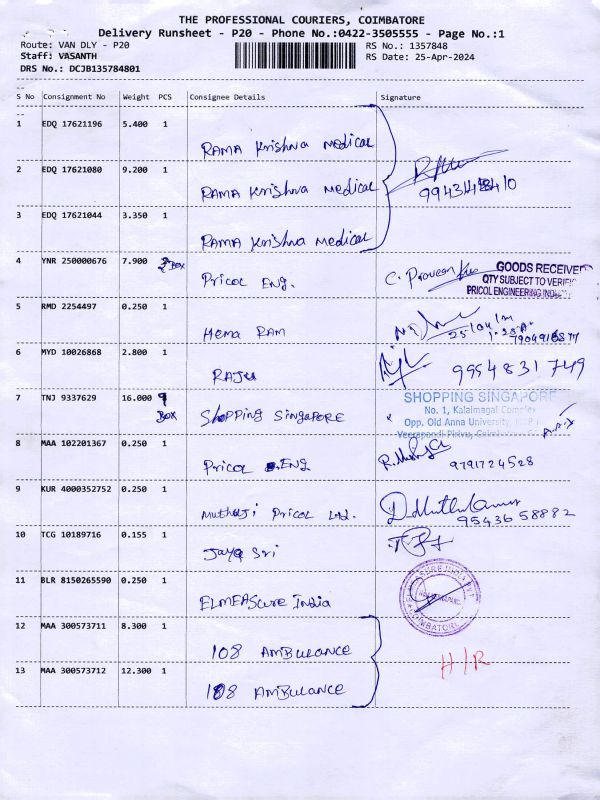 THE PROFESSIONAL COURIERS, COIMBATORE
Delivery Runsheet - P20 - Phone No.:0422-3505555 - Page No.:1
Route: VAN DLY - P20
RS No.: 1357848
Staff: VASANTH
RS Date: 25-Apr-2024
DRS No.: DCJB135784801
S No Consignment No Weight PCS Consignee Details Signature
1 EDQ 17621196 5.400 1
RAMA Krishna Medical
2 EDQ 17621080 9.200 1
RAMA Krishna Medical
99431
3 EDQ 17621044 3.350 1
RAMA Krishna Medical
4 YNR 250000676 7.900 2 BOX
Pricol ENG.
C. Praveen
GOODS RECEIVED
QTY SUBJECT TO VERIFIC
PRICOL ENGINEERING
5 RMD 2254497 0.250 1
Hema RAM
25/04/
6 MYD 10026868 2.800 1
RAJU
9954831749
7 TNJ 9337629 16.000 9 BOX
Shopping Singapore
SHOPPING SINGAPORE
No. 1, Kalaimagal Complex
Opp. Old Anna University,
Veerapandi Pirivu,
8 MAA 102201367 0.250 1
Pricol ENG
9791724528
9 KUR 4000352752 0.250 1
Muthuji Pricol Ltd.
D. Muthukumar
9543658882
10 TCG 10189716 0.155 1
Jaya Sri
11 BLR 8150265590 0.250 1
ELMEASure India
COIMBATORE
12 MAA 300573711 8.300 1
108 AMBULANCE
H/R
13 MAA 300573712 12.300 1
108 AMBULANCE